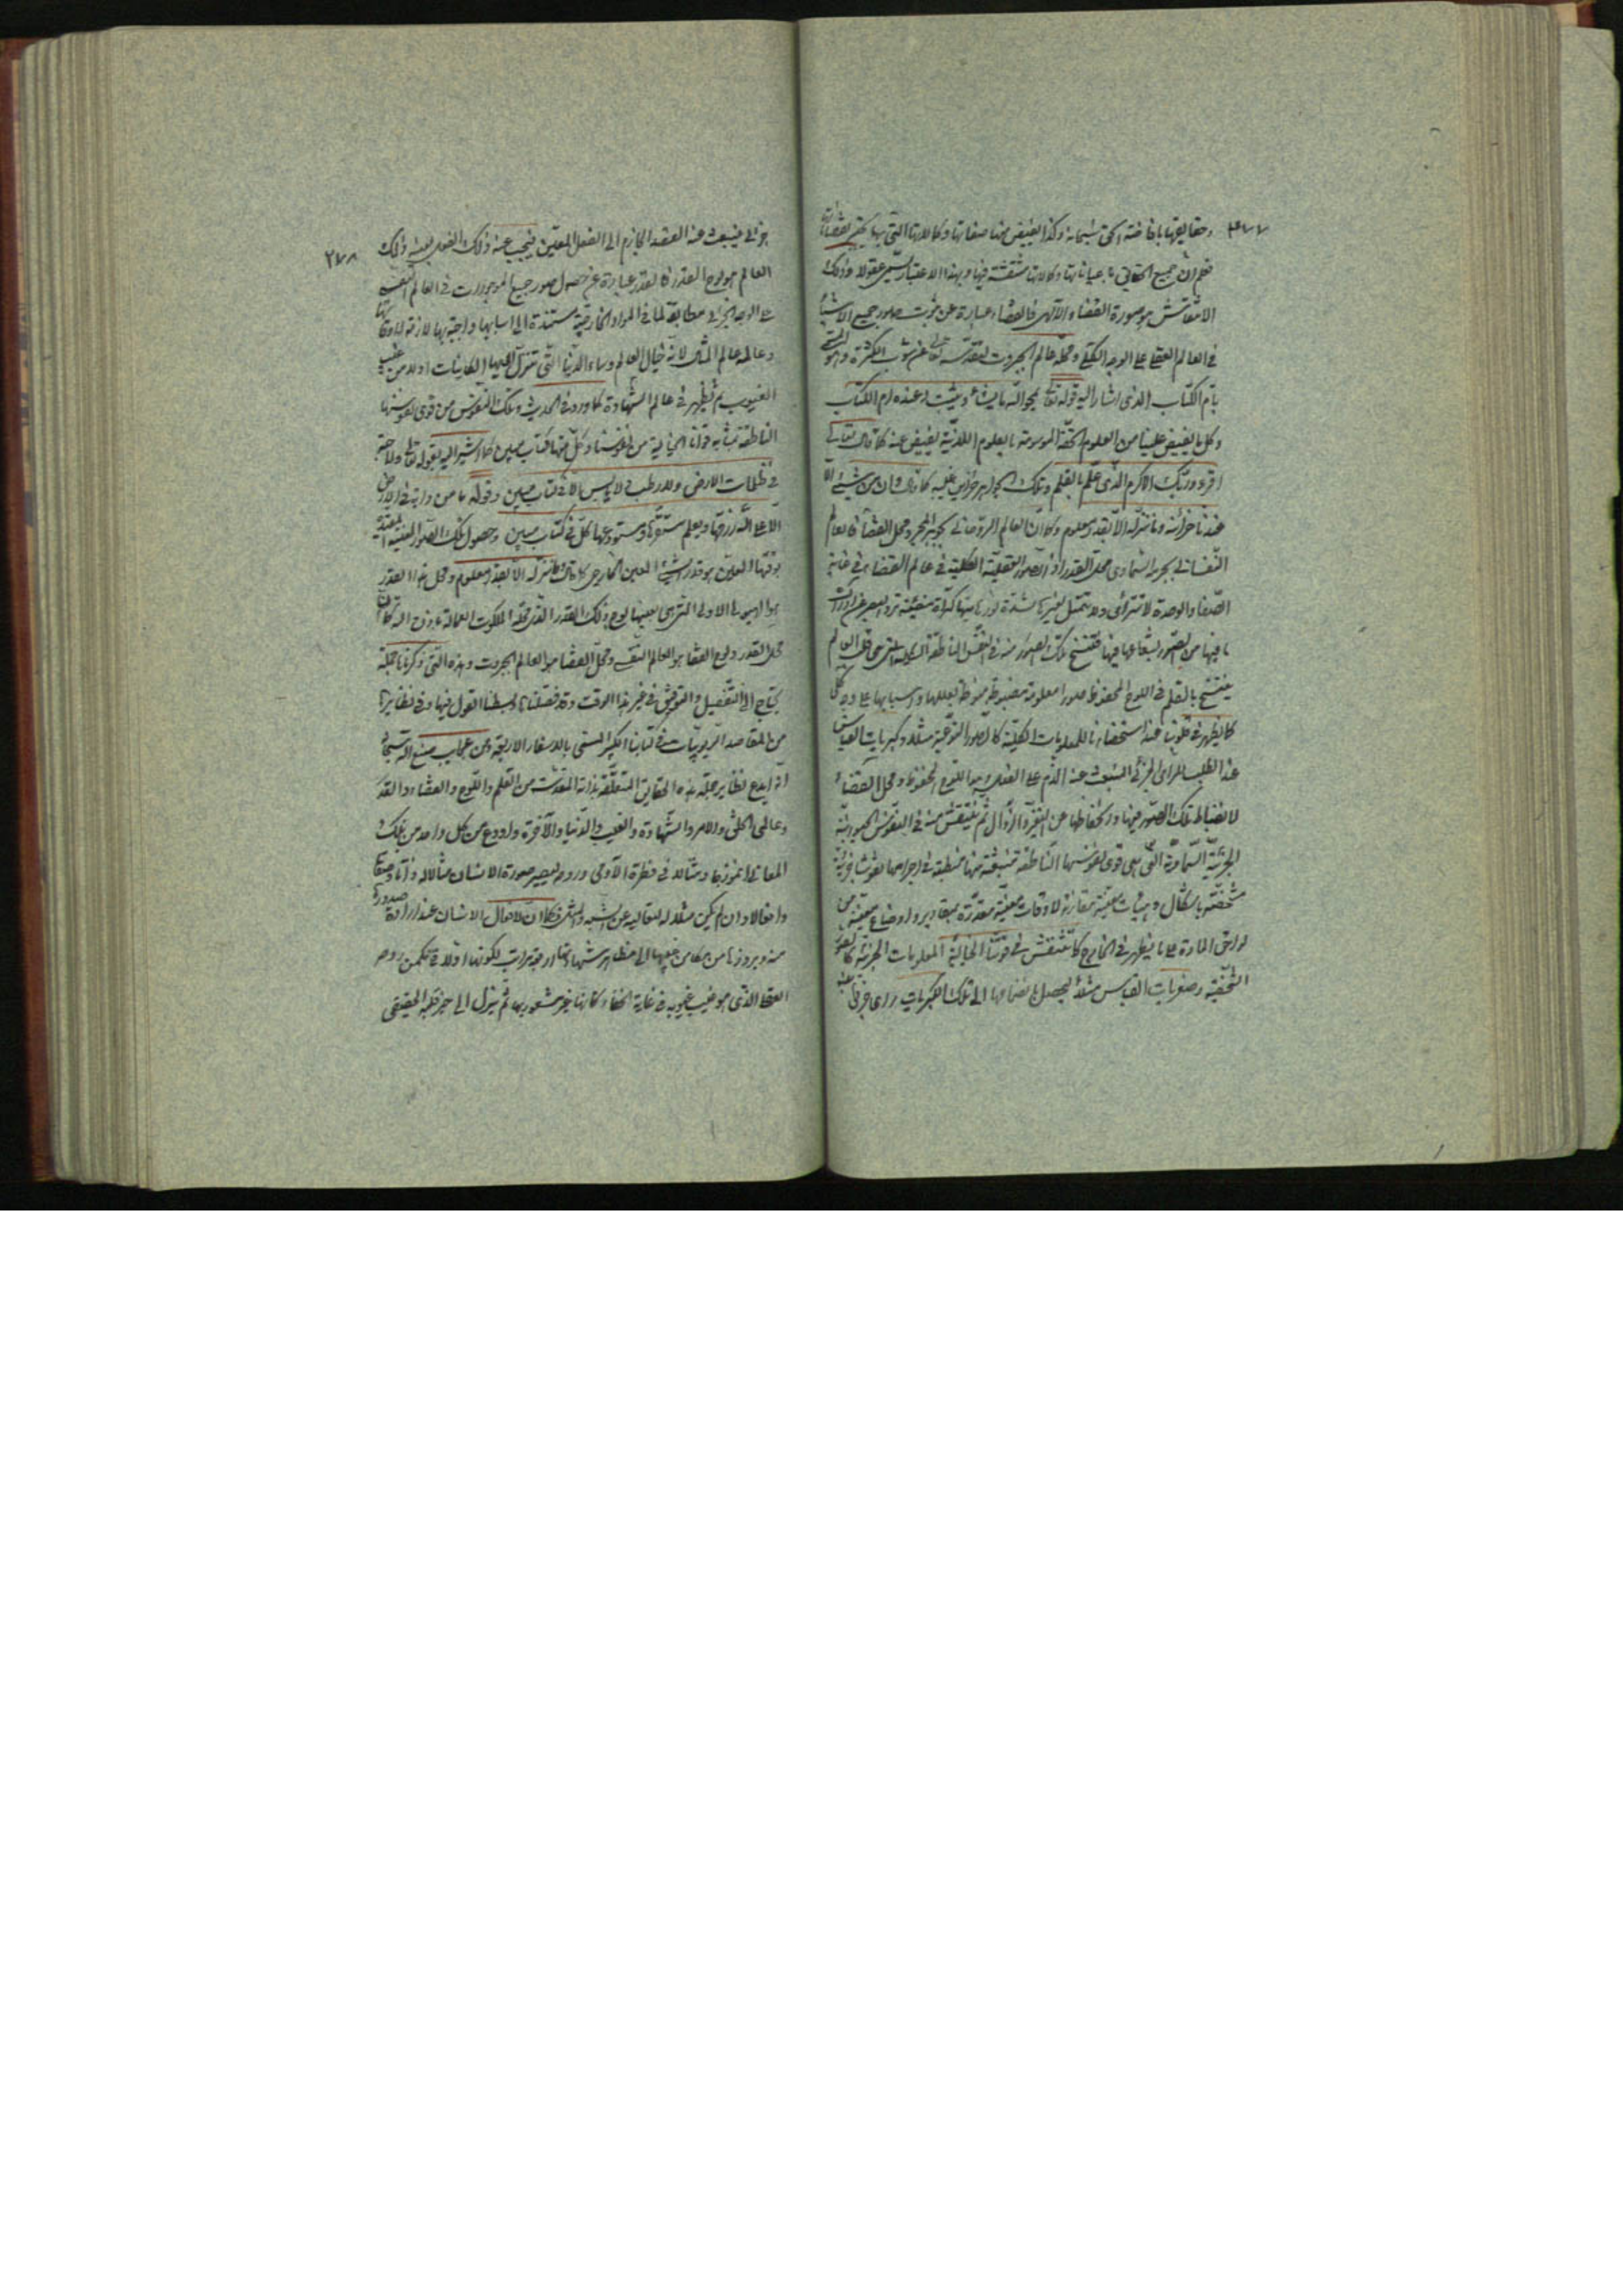 ٢٧٧
وحقايقها بافاضة الحق سبحانه وكذا يفيض منها صفاتها وكالاتها التى بها يجبر نقصاناتها
فعلم ان جميع الحقايق باعيانها وكالاتها منتقشة فيها وبهذا الاعتبار يسمى عقولا وذلك
الانتقاش هو صورة القضاء الالهى فالقضاء عبارة عن ثبوت صور جميع الاشياء
فى العالم العقلى على الوجه الكلى ومحله عالم الجبروت لتقدسه تعالى عن شوب الكثرة وهو المسمى
بام الكتاب الذى اشار اليه قوله تعالى يمحو الله ما يشاء ويثبت وعنده ام الكتاب
وكل ما يفيض علينا من العلوم الحقة الموسومة بالعلوم اللدنية يفيض عنه كما قال تعالى
اقرء وربك الاكرم الذى علم بالقلم وتلك الجواهر خزاين غيبه كما قال وان من شىء الا
عندنا خزائنه وما ننزله الا بقدر معلوم وكما ان العالم الروحانى بجوهره المجرد محل القضاء فالعالم
النفسانى بجرمه السماوى محل القدر اذ الصور العقلية الكلية فى عالم القضاء فى غاية
الصفا والوحدة لا تترائى ولا يتمثل لغيرها لشدة نوريتها كمرآة مضيئة ترد البصر عن ادراك
ما فيها من الصور بشعاعها فيها فتنتسخ تلك الصور منه فى النفس الناطقة الكلية التى هى قلب العالم
ينتسخ بالقلم فى اللوح المحفوظ صورا معلومة مضبوطة منوطة بعللها واسبابها على وجه كلى
كما يظهر فى قلوبنا عند استحضارنا للمعلومات الكلية كالصور النوعية مثلا وكبريات القياس
عند الطلب للراى الجزئى المنبعث عنه العزم على الفعل وهو اللوح المحفوظ ومحل القضاء
لانضباط تلك الصور فيها وانحفاظها عن التغير والزوال ثم ينتقش منه فى النفوس الحيوانية
الجزئية السماوية التى هى قوى نفوسها الناطقة منبعثة منها منطبعة فى اجرامها نقوشا جزئية
مشخصة باشكال وهيئات معينة مقارنة لاوقات معينة مقدرة بمقادير واوضاع معينة من
لواحق المادة على ما يظهر فى الخارج كما ينتقش فى قوتنا الخيالية المعلومات الجزئية كالصور
الشخصية وصغريات القياس مثلا ليحصل بانضمامها الى تلك الكبريات راى جزئى
٢٧٨
جزئى ينبعث عنه القصد الجازم الى الفعل المعين فيجب عنه ذلك الفعل بعينه وذلك
العالم هو لوح القدر فالقدر عبارة عن حصول صور جميع الموجودات فى العالم النفسى
على الوجه الجزئى مطابقة لما فى المواد الخارجية مستندة الى اسبابها واجبة بها لازمة لاوقاتها
وعالمه عالم المثال لانه خيال العالم وسماء الدنيا التى تنزل اليها الكاينات اولا من غيب
الغيوب ثم يظهر فى عالم الشهادة كما ورد فى الحديث وتلك النفوس من قوى نفوسنها
الناطقة بمثابة قوانا الخيالية من نفوسنا وكل منها كتاب مبين كما اشير اليه بقوله تعالى ولا حبة
فى ظلمات الارض ولا رطب ولا يابس الا فى كتاب مبين وقوله ما من دابة فى الارض
الا على الله رزقها ويعلم مستقرها ومستودعها كل فى كتاب مبين وحصول تلك الصور المعينة المعتبرة
بوقتها المعين هو قدر الشىء المعين الخارجى كما قال وما ننزله الا بقدر معلوم ومحل هذا القدر
هو الهيولى الاولى التى هى بعينها لوح ذلك القدر الذى محله الملكوت العمالة
محل القدر ولوح القضا هو العالم النفسى ومحل القضا هو العالم الجبروت وهذه التى ذكرناها جملة
يحتاج الى التفصيل والتوفيق فى غير هذا الوقت وقد فصلناها وبسطنا القول فيها وفى نظايرها
من المقاصد الربوبيات فى كتابنا الكبير المسمى بالاسفار الاربعة ومن عجايب صنع الله سبحانه
انه ابدع نظاير جملة هذه الحقايق المتعلقة بذاته المقدسة من القلم واللوح والقضاء والقدر
وعالمى الخلق والامر والشهادة والغيب والدنيا والآخرة واودع من كل واحد من تلك
المعانى انموذجا ومثالا فى فطرة الآدمى وروحه ليصير صورة الانسان مثالا له ذاتا وصفاتا
وافعالا وان لم يكن مثلا له لتعاليه عن الشبه والمثل فكما ان لافعال الانسان عند ارادة صدورها
منه وبروزها من مكامن غيبها الى مظاهر شهادتها اربعة مراتب لكونها اولا فى مكمن روحه
العقلى الذى هو غيب غيوبه فى غاية الخفاء كانها غير مشعور بها ثم ينزل الى حيز قلبه الحقيقى